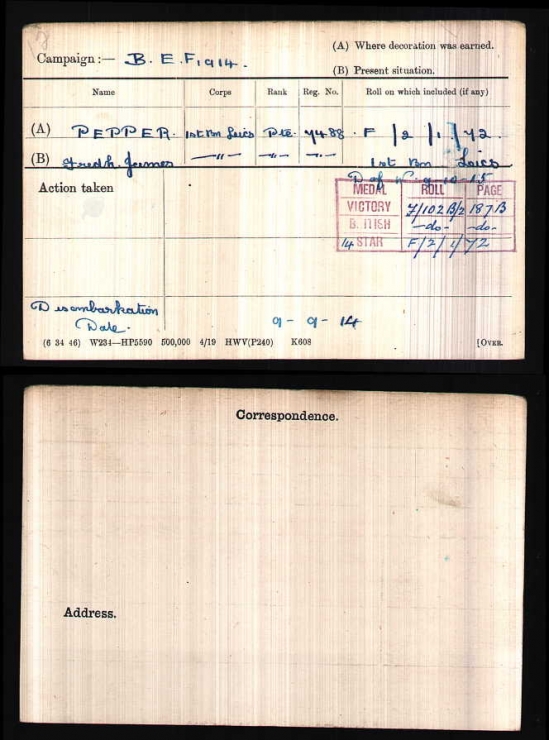 (A) Where decoration was earned.
Campaign :— B. E. F. 1914.
(B) Present situation.
Name Corps Rank Reg. No. Roll on which included (if any)
(A) PEPPER. 1st Bn Leics Pte. 7488. F/2/1/72.
(B) Fredk. James —"— —"— —"— 1st Bn Leics
D of W. 9-10-15
Action taken
MEDAL ROLL PAGE
VICTORY J/102 B/2 187 B
BRITISH -do- -do-
14 STAR F/2/1/72
Disembarkation
Date. 9 - 9 - 14
(6 34 46) W234—HP5590 500,000 4/19 HWV(P240) K608 [OVER.
Correspondence.
Address.